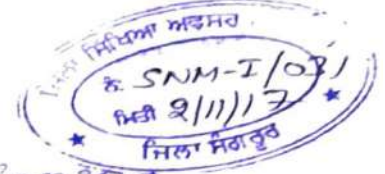 ਜਿਲਾ ਸਿੱਖਿਆ ਅਫਸਰ
ਨੰ: SNM-I/031
ਮਿਤੀ 2/11/17
ਜਿਲਾ ਸੰਗਰੂਰ